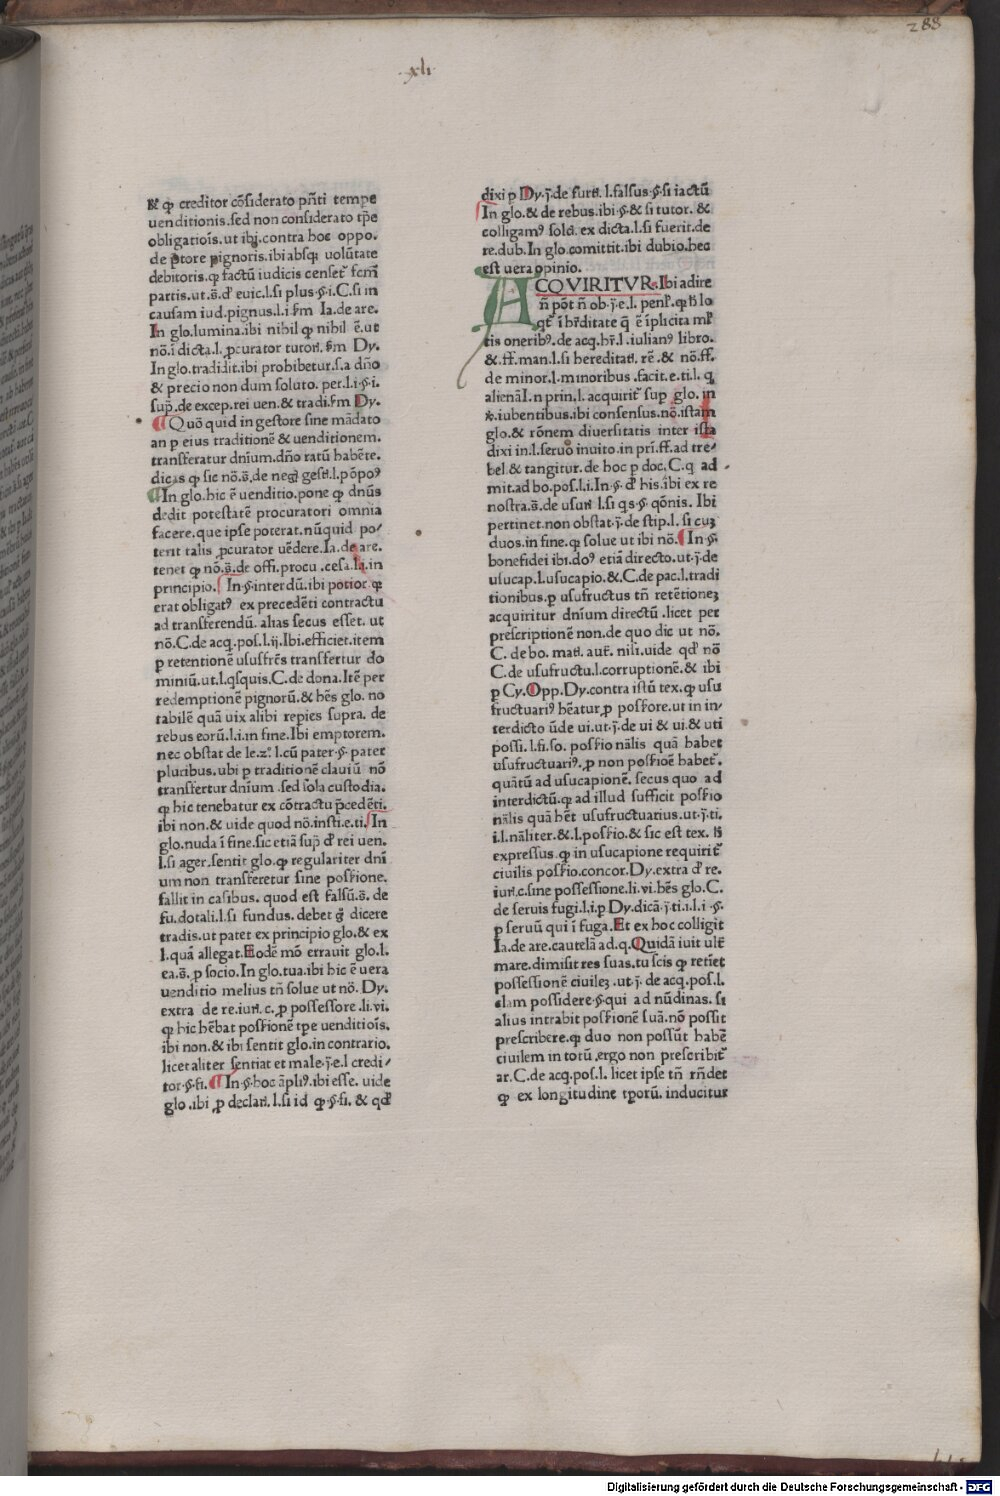 288
xli
& ꝙ creditor cōsiderato pn̄ti tempe
uenditionis.sed non considerato tp̄e
obligatiōis.ut ibi.contra hoc oppo.
de p̄tore pignoris.ibi absqꝫ uolūtate
debitoris.ꝙ factū iudicis censet᷑ fcm̄
partis.ut.s̄.đ euic.l.si plus.§.i.C.si in
causam iud.pignus.l.i.ẜm Ia.de are.
In glo.lumina.ibi nihil ꝙ nihil ē.ut
nō.ī dicta.l.ꝓcurator tutori.ẜm Dy.
In glo.tradidit.ibi probibetur.s.a dn̄o
& precio non dum soluto. per.l.i.§.i.
sup̄.de excep.rei uen.& tradi.ẜm Dy.
¶ Quō quid in gestore sine mādato
an p eius traditionē & uenditionem.
transferatur dn̄ium.dn̄o ratū habēte.
dicas ꝙ sic nō.s̄.de neg̅ gesti.l.pōpoꝰ
¶ In glo.hic ē uenditio.pone ꝙ dn̄us
dedit potestatē procuratori omnia
facere.que ipse poterat.nūquid po/
terit talis ꝓcurator uēdere.Ia.de are.
tenet ꝙ nō.s̄.de offi.procu.cesa.l.i.in
principio. In §.interdū.ibi potior ꝙ
erat obligatꝰ ex precedēti contractu
ad transferendū.alias secus esset. ut
nō.C.de acq.pos.l.ij.Ibi.efficiet.item
ꝑ retentionē ususfrēs transfertur do
miniū.ut.l.qsquis.C.de dona.Itē per
redemptionē pignorū.& hēs glo. no
tabilē quā uix alibi repies supra. de
rebus eorū.l.i.in fine.Ibi emptorem.
nec obstat de le.z.l.cū pater.§.pater
pluribus.ubi ꝑ traditionē clauiū nō
transfertur dn̄ium .sed sola custodia.
ꝙ hic tenebatur ex cōtractu p̄cedēti.
ibi non.& uide quod nō.insti.e.ti. In
glo.nuda ī fine.sic etiā sup̄ đ rei uen.
l.si ager.sentit glo.ꝙ regulariter dni
um non transferetur sine possione.
fallit in casibus. quod est falsū.s̄. de
fu.dotali.l.si fundus. debet g̅ dicere
tradis.ut patet ex principio glo.& ex
l.quā allegat.Eodē mō errauit glo.l.
ea.s̄.ꝓ socio.In glo.tua.ibi hic ē uera
uenditio melius tn̄ solue ut nō. Dy.
extra de re.iuri.c.ꝓ possessore.li.vi.
ꝙ hic hēbat possionē tp̄e uenditiōis.
ibi non.& ibi sentit glo.in contrario.
licet aliter sentiat et male.j̄.e.l credi/
tor.§.fi. ¶ In §.hoc āpliꝰ.ibi esse. uide
glo.ibi ꝓ declari.l.si id ꝙ.§.fi. & qđ
dixi ꝑ Dy.j̄.de furti.l.falsus.§.si iactū
In glo.& de rebus.ibi §.& si tutor. &
colligamꝰ solō. ex dicta.l.si fuerit.de
re.dub.In glo.comittit.ibi dubio.hec
est uera opinio.
ACQVIRITVR. Ibi adire
n̄ pōt n̄ ob.j̄.e.l. penl̄.ꝙ ħ lo
qt᷑ ī hr̄ditate q̄ ē īplicita ml̄
tis oneribꝰ.de acq.hr̄.l.iulianꝰ libro.
& .ff.man.l.si hereditati. rē.& nō.ff.
de minor.l.minoribus .facit.e.ti.l. q
alienāI.n prin.l.acquirit᷑ sup glo. in
ꝟ.iubentibus.ibi consensus.nō.istam
glo.& rōnem diuersitatis inter ista
dixi in.l.seruo inuito.in pri.ff.ad tre/
bel.& tangitur.de hoc ꝑ doc.C.q ad
mit.ad bo.pos.l.i.In.§.đ his.ibi ex re
nostra.s̄.de usuri l.si qs.§.qōnis. Ibi
pertinet.non obstat.j̄.de stip.l. si cuꝫ
duos.in fine.ꝙ solue ut ibi nō. ¶ In §.
bonefidei ibi.doꝰ etiā directo.ut.j̄.de
usucap.l.usucapio.&.C.de pac.l.tradi
tionibus.ꝑ usufructus tn̄ retētioneꝫ
acquiritur dnium directū .licet per
prescriptionē non.de quo dic ut nō.
C. de bo. mati. aut̄. nili. uide qđ nō
C.de usufructu.l.corruptionē.& ibi
ꝑ Cy.Opp.Dy.contra istū tex.ꝙ usu
fructuariꝰ hēatur ꝓ possore.ut in in/
terdicto ūde ui.ut.j̄.de ui & ui.& uti
possi.l.fi.so. possio nālis quā habet
usufructuariꝰ.ꝓ non possioē habet᷑.
quātū ad usucapionē. secus quo ad
interdictū.ꝙ ad illud sufficit possio
nālis quā hēt usufructuarius.ut.j̄.ti.
i.l.nāliter.&.l.possio.& sic est tex. ħ
expressus.ꝙ in usucapione requirit᷑
ciuilis possio.concor.Dy.extra đ re.
iuri.c.sine possessione.li.vi.hēs glo.C.
de seruis fugi.l.i.ꝑ Dy.dicā.j̄.ti.i.l.i §.
ꝑ seruū qui ī fuga.Et ex hoc colligit
Ia.de are.cautelā ad.q.Quidā iuit ult̄
mare.dimisit res suas.tu scis ꝙ retīet
possessionē ciuileꝫ.ut.j̄. de acq.pos.l.
clam possidere.§.qui ad nūdinas. si
alius intrabit possionē suā.nō possit
prescribere.ꝙ duo non possūt habē
ciuilem in totū .ergo non prescribit᷑
ar.C.de acq.pos.l. licet ipse tn̄ rn̄det
ꝙ ex longitudine tp̄orū. inducitur
Digitalisierung gefördert durch die Deutsche Forschungsgemeinschaft - DFG